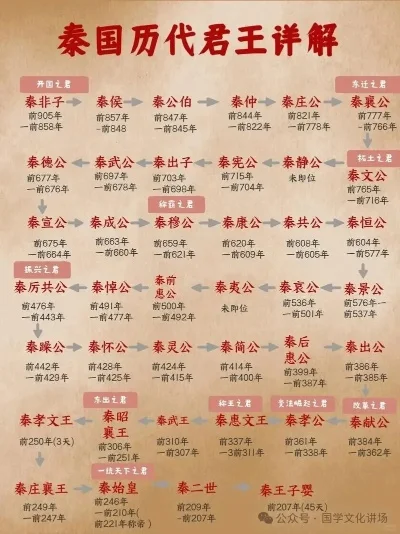 秦国历代君王详解
开国之君
东迁之君
秦非子
秦侯
秦公伯
秦仲
秦庄公
秦襄公
前905年
一前858年
前857年
-前848
前847年
一前845年
前844年
一前822年
前821年
一前778年
前777年
-前766年
拓土之君
秦德公
秦武公
秦出子
秦宪公
秦静公
秦文公
前677年
一前676年
前697年
一前678年
前703年
一前698年
前715年
一前704年
未即位
前765年
一前716年
称霸之君
秦宣公
秦成公
秦穆公
秦康公
秦共公
秦恒公
前675年
一前664年
前663年
一前660年
前659年
一前621年
前620年
一前609年
前608年
一前605年
前604年
一前577年
振兴之君
秦厉共公
秦悼公
秦前
惠公
秦夷公
秦哀公
秦景公
前476年
一前443年
前491年
一前477年
前500年
一前492年
未即位
前536年
一前501年
前576年一
前537年
秦躁公
秦怀公
秦灵公
秦简公
秦后
惠公
秦出公
前442年
一前429年
前428年
一前425年
前424年
一前415年
前414年
一前400年
前399年
一前387年
前386年
一前385年
东出之君
称王之君
变法崛起之君
改革之君
秦孝文王
秦昭
襄王
秦武王
秦惠文王
秦孝公
秦献公
前250年(3天)
前306年
一前251年
前310年
一前307年
前337年
一3前311年
前361年
一前338年
前384年
一前362年
一统天下之君
秦庄襄王
秦始皇
秦二世
秦王子婴
前249年
一前247年
前246年
一前210年(
前221年称帝)
前209年
-前207年
前207年(45天)
公众号·国学文化讲场